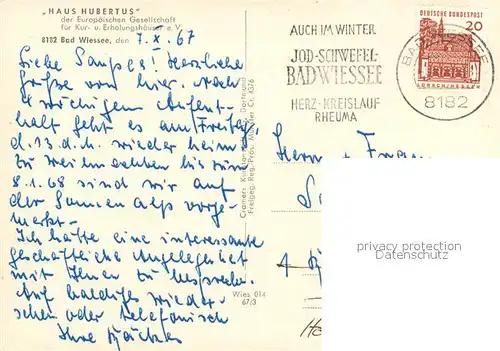 „HAUS HUBERTUS"
der Europäischen Gesellschaft
für Kur- u. Erholungshäuser e.V.
8182 Bad Wiessee, den 7.X.67
Liebe Herzliche
Grüße von hier. Nach
4 wöchigem Aufent-
halt geht es am Freitag
d. 13. d. M. wieder heim
zu Weihnachten bis zum
8.1.68 sind wir auf
der Sonnenalp vorge-
merkt.
Ich hätte eine interessante
geschäftliche Angelegenheit
mit Ihnen zu besprechen.
Auf baldiges Wieder-
sehen oder telefonisch
Ihre
Wies 014
67/3
AUCH IM WINTER
JOD-SCHWEFEL-
BAD WIESSEE
HERZ-KREISLAUF
RHEUMA
DEUTSCHE BUNDESPOST
20
LORSCH/HESSEN
BAD WIESSEE
8182
Herrn + Frau
privacy protection
by Veikkos.com